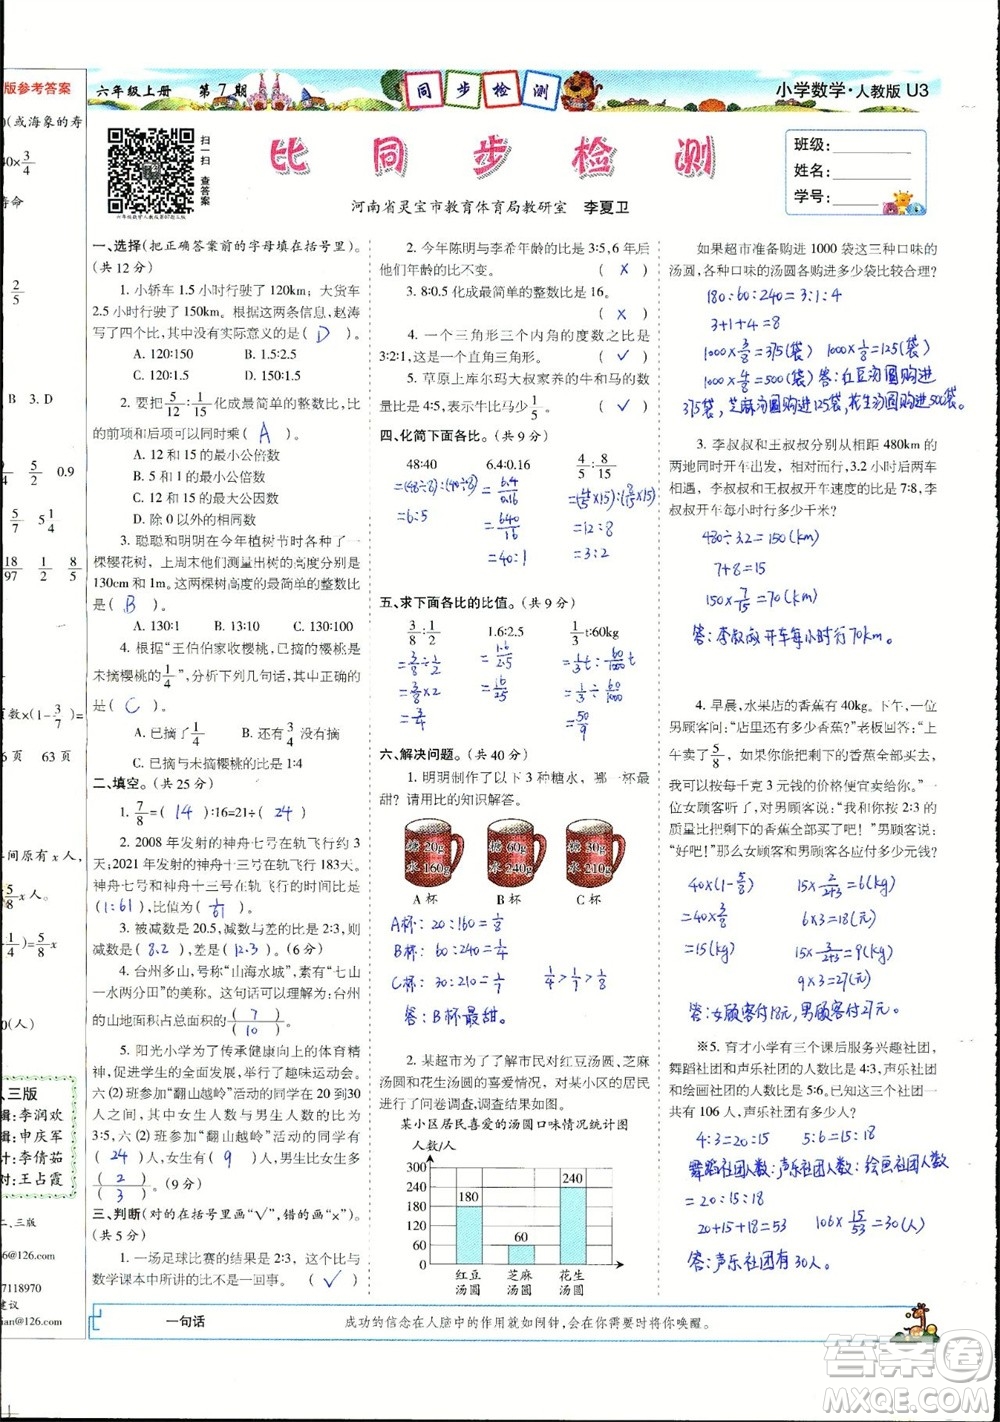 版参考答案
)(或海象的寿
40×3/4
寿命
2/5
B 3. D
5/2 0.9
5/7 5 1/4
18/97 1/2 8/5
页数×(1-3/7)=
6页 63页
年间原有x人，
5/8 人。
1/4)=5/8 x
0(人)
、三版
辑：李润欢
辑：申庆军
计：李倩茹
对：王占霞
二、三版
6@126.com
7118970
建议
ian@126.com
六年级上册 第7期
同步检测
小学数学·人教版 U3
扫一扫 查答案
比同步检测
班级：
姓名：
学号：
河南省灵宝市教育体育局教研室 李夏卫
一、选择(把正确答案前的字母填在括号里)。
(共12分)
1. 小轿车1.5小时行驶了120km，大货车
2.5小时行驶了150km。根据这两条信息，赵涛
写了四个比，其中没有实际意义的是( D )
A. 120∶150 B. 1.5∶2.5
C. 120∶1.5 D.150∶1.5
2. 要把5/12∶1/15化成最简单的整数比，比
的前项和后项可以同时乘( A )。
A. 12和15的最小公倍数
B. 5和1的最小公倍数
C. 12和15的最大公因数
D. 除0以外的相同数
3. 聪聪和明明在今年植树节时各种了一
棵樱花树，上周末他们测量出树的高度分别是
130cm和1m。这两棵树高度的最简单的整数比
是( B )。
A. 130∶1 B. 13∶10 C. 130∶100
4. 根据“王伯伯家收樱桃，已摘的樱桃是
未摘樱桃的1/4”，分析下列几句话，其中正确的
是( C )。
A. 已摘了1/4 B. 还有3/4没有摘
C. 已摘与未摘樱桃的比是1∶4
二、填空。(共25分)
1. 7/8=( 14 )∶16=21÷( 24 )
2. 2008年发射的神舟七号在轨飞行约3
天，2021年发射的神舟十三号在轨飞行183天。
神舟七号与神舟十三号在轨飞行天数的比是
(1:61)，比值是( 1/61 )。
3. 被减数是20.5，减数与差的比是2∶3，则
减数是( 8.2 )，差是( 12.3 )。(6分)
4. 台州多山，号称“山海水城”，素有“七山
一水两分田”的说法。这句话可以看出：台州
的山地面积占总面积的( 7 )/( 10 )。
5. 阳光小学为了传承健康向上的体育精神，
举办了一场“翻山越岭”的趣味运动会。其中六
⑵班参加“翻山越岭”活动的男生有15人，比女
生多6人，其中女生人数与男生人数的比是
3∶5，六⑵班参加“翻山越岭”活动的同学有
( 24 )人，女生有( 9 )人，是男生的
( 2 )/( 3 )。(9分)
三、判断(对的在括号里画“√”，错的画“×”)。
(共5分)
1. 一场足球比赛的结果是2∶3，这里的比与
数学课本中所讲的比不是一回事。 ( √ )
2. 今年陈明与李希年龄的比是3∶5，六年后
他们年龄的比不变。 ( × )
3. 8∶0.5化成最简单的整数比是16。
( × )
4. 一个三角形三个内角的度数之比是
3∶2∶1，这是一个直角三角形。 ( √ )
5. 草原上库尔玛大叔家养的牛和马的数
量比是4∶5，表示牛比马少1/5。 ( √ )
四、化简下面各比。(共9分)
48∶40 6.4∶0.16 4/5∶8/15
=(48÷8):(40÷8) =6.4/0.16 =(4/5×15):(8/15×15)
=6:5 =640/16 =12:8
=40 =3:2
五、求下面各比的比值。(共9分)
3/8∶1/2 1.6∶2.5 1/3t∶60kg
=3/8÷1/2 =1.6/2.5 =1/3t:60/1000t
=3/8×2 =16/25 =1/3÷60/1000
=3/4 =50/9
六、解决问题。(共40分)
1. 明明配制了以下3种糖水，哪一杯最
甜？请用比的知识解答。
糖 20g 水 160g
糖 60g 水 240g
糖 30g 水 210g
A杯 B杯 C杯
A杯：20:160=1/8
B杯：60:240=1/4
C杯：30:210=1/7 1/4>1/7>1/8
答：B杯最甜。
2. 某超市为了了解市民对红豆汤圆、芝麻
汤圆和花生汤圆的喜爱情况，对某小区的居民
进行了问卷调查，调查结果如下图。
某小区居民喜爱的汤圆口味情况统计图
人数/人
300
240
180
120
60
0
180
60
240
红豆汤圆 芝麻汤圆 花生汤圆
如果超市准备购进1000袋这三种口味的
汤圆，各种口味的汤圆各购进多少袋比较合理？
180:60:240=3:1:4
3+1+4=8
1000×3/8=375(袋) 1000×1/8=125(袋)
1000×4/8=500(袋) 答：红豆汤圆购进
375袋，芝麻汤圆购进125袋，花生汤圆购进500袋。
3. 李叔叔和王叔叔分别从相距480km的
两地同时开车出发，相向而行，3.2小时后两车
相遇，李叔叔和王叔叔开车速度的比是7∶8，李
叔叔开车每小时行多少千米？
480÷3.2=150(km)
7+8=15
150×7/15=70(km)
答：李叔叔开车每小时行70km。
4. 早晨，水果店的香蕉有40kg。下午，一位
男顾客问：“店里还有多少香蕉？”老板回答：“上
午卖了5/8，如果你能把剩下的香蕉全部买走，
我可以按每千克3元钱的价格便宜卖给你。”一
位女顾客听了，对男顾客说：“我和你按2∶3的
质量比把剩下的香蕉全部买了吧！”男顾客说：
“好吧！”那么女顾客和男顾客各应付多少元钱？
40×(1-5/8) 15×2/(2+3)=6(kg)
=40×3/8 6×3=18(元)
=15(kg) 15×3/(2+3)=9(kg)
9×3=27(元)
答：女顾客付18元，男顾客付27元。
※5. 育才小学有三个课后服务兴趣社团，
舞蹈社团和声乐社团的人数比是4∶3，声乐社团
和绘画社团的人数比是5∶6。已知这三个社团一
共有106人，声乐社团有多少人？
4:3=20:15 5:6=15:18
舞蹈社团人数:声乐社团人数:绘画社团人数
=20:15:18
20+15+18=53 106×15/53=30(人)
答：声乐社团有30人。
一句话
成功的信念在人脑中的作用就如闹钟，会在你需要时将你唤醒。
答案圈
MXQE.COM